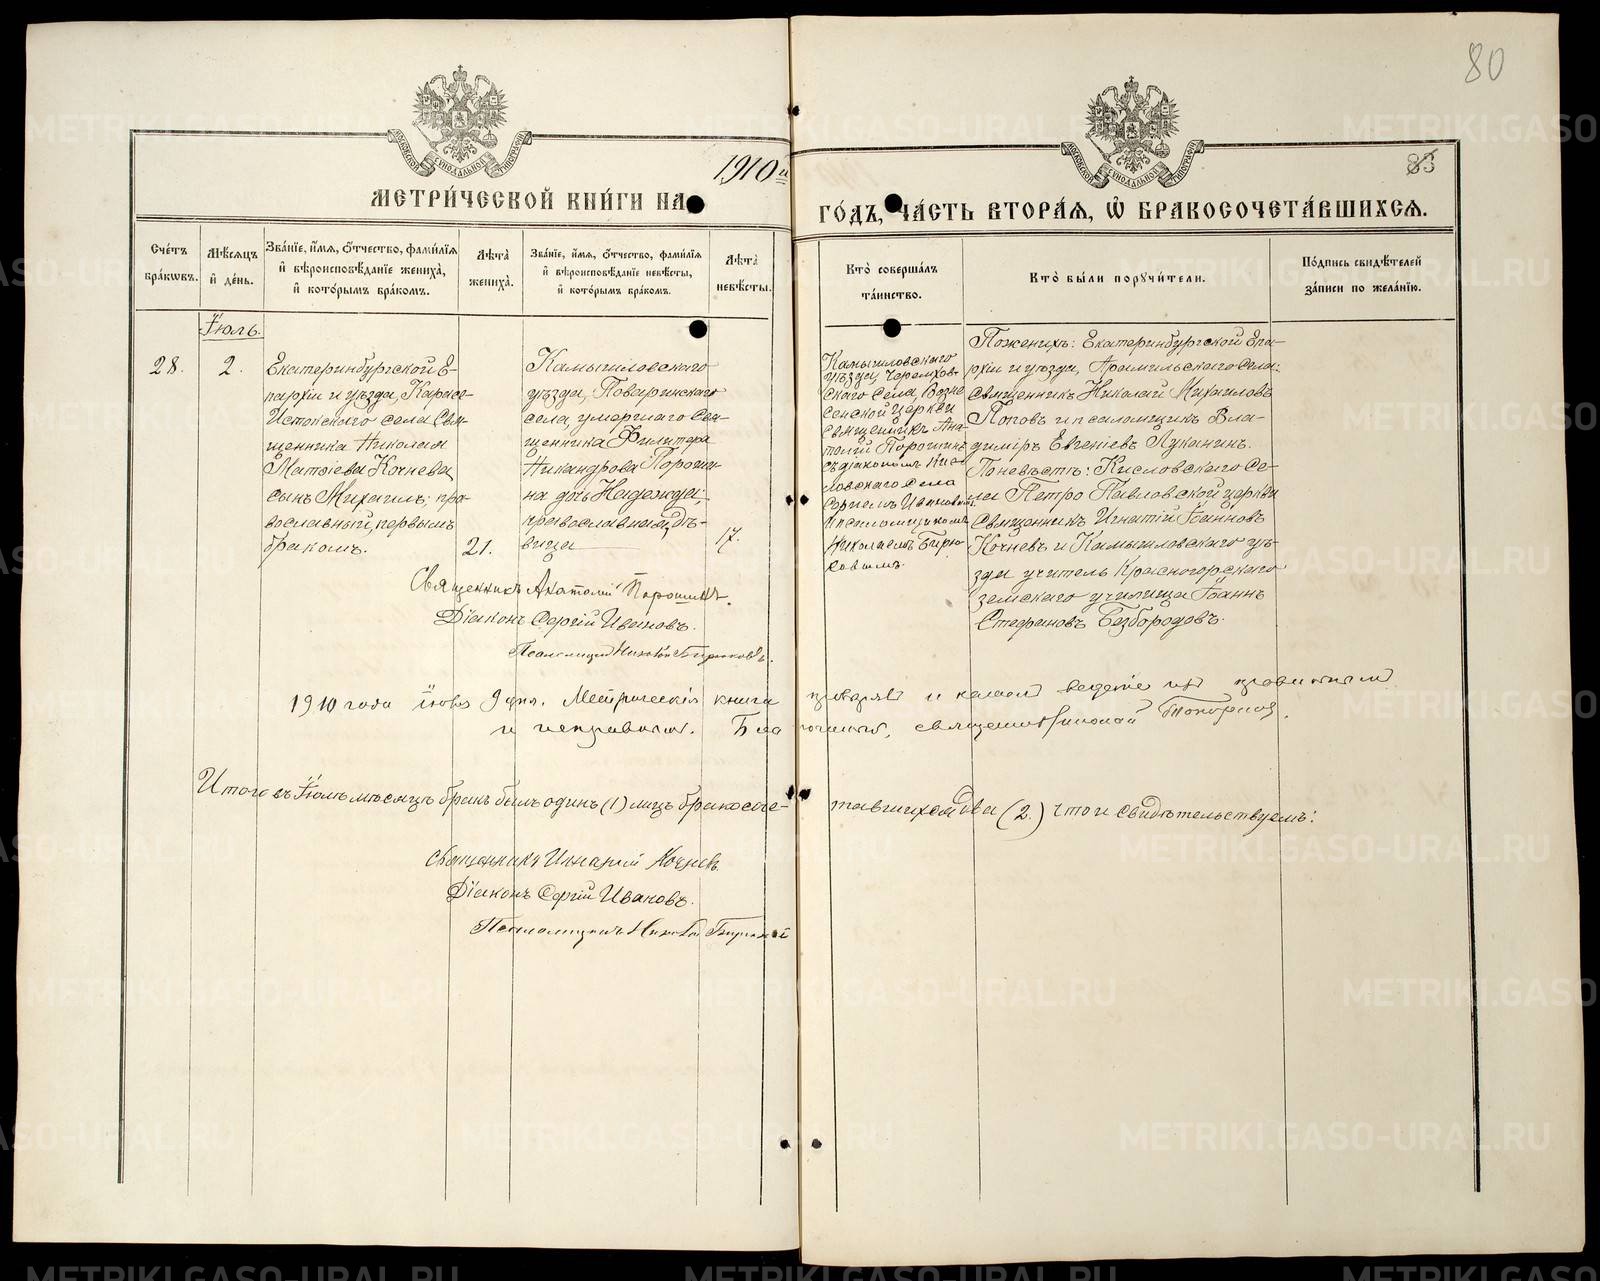 80
83
МОСКОВСКОЙ СѴНОДАЛЬНОЙ ТИПОГРАФІИ
МОСКОВСКОЙ СѴНОДАЛЬНОЙ ТИПОГРАФІИ
МЕТРИ́ЧЕСКОЙ КНИ́ГИ НА 1910 й
ГО́ДЪ, ЧА́СТЬ ВТОРА́Ѧ, Ѽ БРАКОСОЧЕТА́ВШИХСѦ.
Сче́тъ бра́кѡвъ.
Мѣ́сѧцъ й де́нь.
Зва́нїе, и́мѧ, ѻ́тчество, фамѝлїѧ й вѣроисповѣ́данїе жениха̀, й кото́рымъ бра́комъ.
Лѣ́та жениха̀.
Зва́нїе, и́мѧ, ѻ́тчество, фамѝлїѧ й вѣроисповѣ́данїе невѣ́сты, й кото́рымъ бра́комъ.
Лѣ́та невѣ́сты.
Кто̀ соверша́лъ та́инство.
Кто̀ бы́ли порꙋчи́тели.
По́дпись свидѣ́телей за́писи по жела́нїю.
Іюль.
28.
2.
Екатеринбургской Е-
пархіи и уѣзда, Карасе-
Истокскаго села Свя-
щенника Николая
Матѳіева Кочнева
сынъ Михаилъ; пра-
вославный, первымъ
бракомъ.
21.
Камышловскаго
уѣзда, Поваринскаго
села, умершаго Свя-
щенника Филитера
Никандрова Пороши-
на дочь Надежда;
православная, дѣ-
вица
17.
Камышловскаго
уѣзда, Черемхов-
скаго Села, Возне-
сенской церкви
Священникъ Ана-
толій Порошинъ
съ діакономъ Кис-
ловскаго Села
Сергіемъ Ивановымъ
и псаломщикомъ
Николаемъ Бирю-
ковымъ.
По женихѣ: Екатеринбургской Епа-
рхіи и уѣзда, Арамильскаго Села:
Священникъ Николай Михаиловъ
Поповъ и псаломщикъ Вла-
димiръ Евгеніевъ Луканинъ.
По невѣстѣ: Кисловскаго Се-
ла Петро Павловской церкви
Священникъ Игнатій Іоанновъ
Кочневъ и Камышловскаго уѣ-
зда учитель Красногорскаго
земскаго училища Іоаннъ
Стефановъ Безбородовъ.
Священникъ Анатолій Порошинъ.
Діаконъ Сергій Ивановъ.
Псаломщикъ Николай Бирюковъ.
1910 года 9 дня. Метрическія книга
и исправны.
священникъ Николай Топорковъ.
Итого въ Іюлѣ мѣсяцѣ бракъ былъ одинъ (1) лицъ бракосоче-
тавшихся два (2.) что и свидѣтельствуемъ:
Священникъ Игнатій Кочневъ.
Діаконъ Сергій Ивановъ.
Псаломщикъ Николай Бирюковъ
METRIKI.GASO-URAL.RU